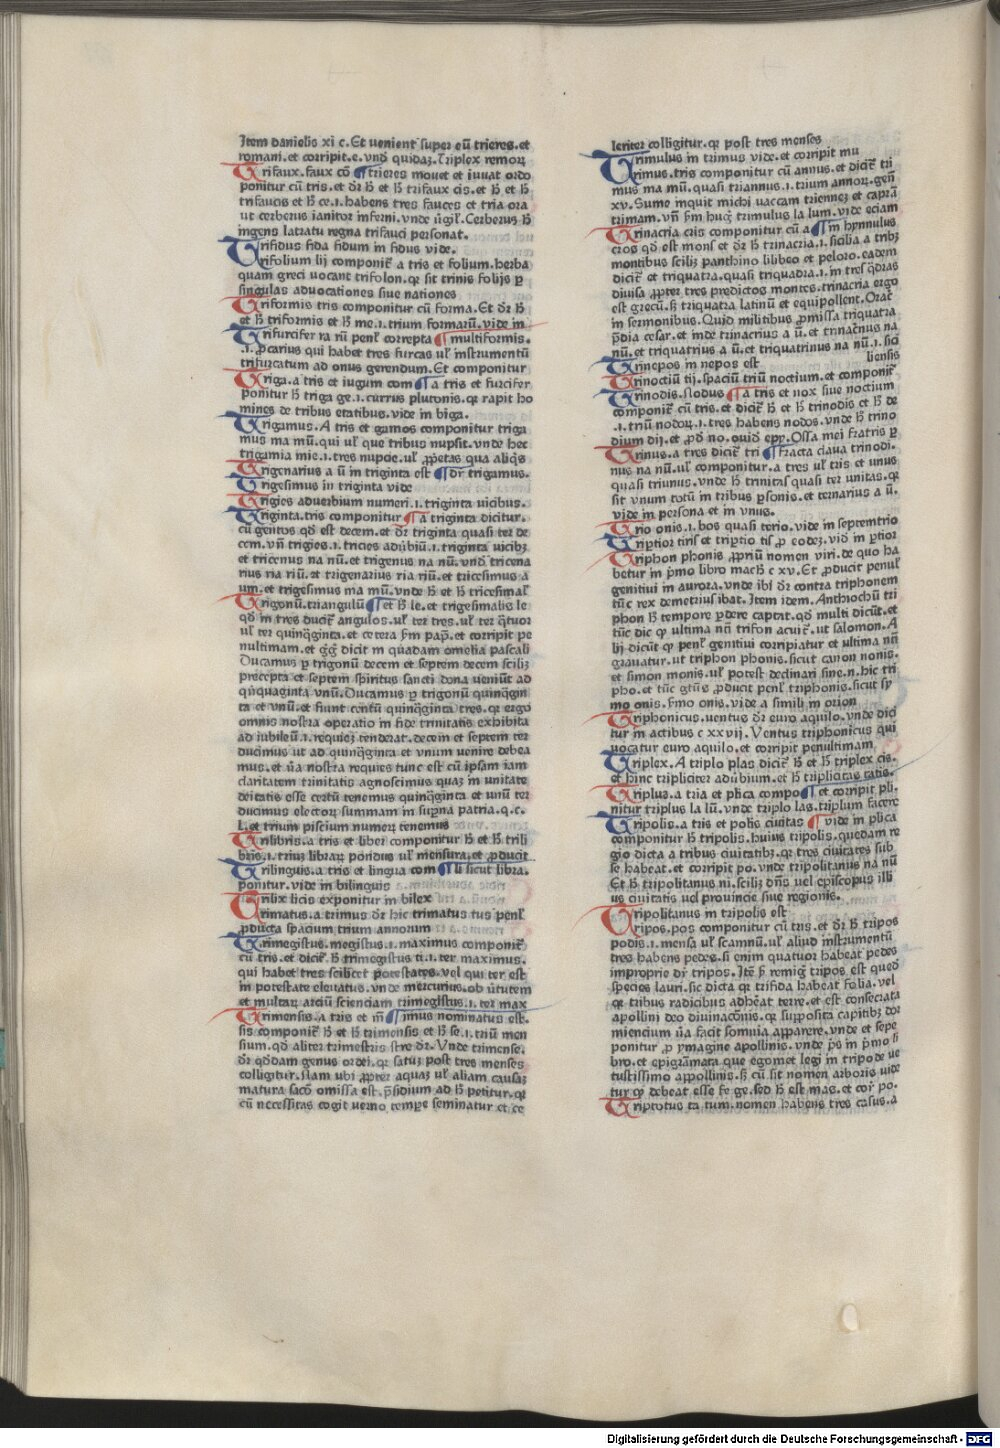 Item danielis xi c. Et uenient super eū trieres. et
romani. et corripit. e. vnd quidaz. Triplex remorꝝ
Trifaux. faux cō ¶ trieres mouet et iuuat ordo
ponitur cū tris. et dr̄ h̄ et h̄ trifaux cis. et h̄ et h̄
trifaucis et h̄ ce. i. habens tres fauces et tria ora
ut cerberus ianitor inferni. vnde ūgil̄. Cerberus h̄
ingens latratu regna trifauci personat.
Trifidus fida fidum in fidus vide.
Trifolium lij componit̄ a tris et folium. herba
quam greci uocant trifolon. qꝛ sit trinis folijs ꝑ
singulas aduocationes siue nationes
Triformis tris componitur cū forma. Et dr̄ h̄
et h̄ triformis et h̄ me. i. trium formarū. vide in
Trifurcifer ra rū penl̄ correpta ¶ multiformis.
.i. ꝓcarius qui habet tres furcas ul̄ instrumentū
trifurcatum ad onus gerendum. Et componitur
Triga. a tris et iugum com ¶ a tris et furcifer
ponitur h̄ triga ge. i. currus plutonis. qꝛ rapit ho
mines de tribus etatibus. vide in biga.
Trigamus. A tris et gamos componitur triga
mus ma mū. qui ul̄ que tribus nupsit. vnde hec
trigamia mie. i. tres nupcie. ul̄ ꝓpetas qua aliq̄s
Trigenarius a ū in triginta est ¶ dr̄ trigamus.
Trigesimus in triginta vide
Trigies aduerbium numeri. i. triginta uicibus.
Triginta. tris componitur ¶ a triginta dicitur.
cū gentos qd̄ est decem. et dr̄ triginta quasi ter de
cem. vn̄ trigies. i. tricies adūbiū. i. triginta uicibꝫ
et tricenus na nū. et trigenus na nū. vnd̄ tricena
rius ria riū. et trigenarius ria riū. et tricesimus a
um. et trigesimus ma mū. vnde h̄ et h̄ tricesimal̄
Trigonū. triangulū ¶ et h̄ le. et trigesimalis le
qd̄ in tres ducit̄ angulos. ul̄ ter tres. ul̄ ter q̄tuor
ul̄ ter quinq̄ginta. et cetera ẜm pap̄. et corripit pe
nultimam. et g̊g̊ dicit in quadam omelia pascali
Ducamus ꝑ trigonū decem et septem decem sciliꝫ
precepta et septem spiritus sancti dona ueniūt ad
qūquaginta vnū. Ducamus ꝑ trigonū quinq̄gin
ta et vnū. et fiunt centū quinq̄ginta tres. qꝛ ergo
omnis nostra operatio in fide trinitatis exhibita
ad iubileū. i. requieꝫ tenderat. decem et septem ter
ducimus ut ad quinq̄ginta et vnum uenire debea
mus. et ūa nostra requies tunc est cū ipsam iam
claritatem trinitatis agnoscimus quaꝫ in unitate
deitatis esse certū tenemus quinq̄ginta et unū ter
ducimus electoꝝ summam in suꝑna patria. q. c.
l. et trium piscium numeꝝ tenemus
Trilibris. a tris et liber componitur h̄ et h̄ trili
bris. i. triuꝫ libraꝝ pondus ul̄ mensura. et ꝓducit
Trilinguis. a tris et lingua com ¶ li sicut libra.
ponitur. vide in bilinguis
Trilix licis exponitur in bilex
Trimatus. a trimus dr̄ hic trimatus tus penl̄
ꝓducta spacium trium annorum
Trimegistus. megistus. i. maximus componit̄
cū tris. et dicit̄ h̄ trimegistus ti. i. ter maximus.
qui habet tres scilicet potestates. vel qui ter est
in potestate eleuatus. vnde mercurius. ob ūtutem
et multaꝝ arciū scienciam trimegistus. i. ter max
Trimensis. a tris et m̄ ¶ imus nominatus est.
sis componit̄ h̄ et h̄ trimensis et h̄ se. i. triū men
sium. qd̄ aliter trimestris stre dr̄. Vnde trimense.
dr̄ qd̄dam genus ordei. qꝛ satuꝫ post tres menses
colligitur. Nam ubi ꝓpter aquaꝫ ul̄ aliam causaꝫ
matura sac̄o omissa est. p̄sidium ad h̄ petitur. qꝛ
cū necessitas cogit uerno tempe seminatur et ce
leriter colligitur. qꝛ post tres menses
Trimulus in trimus vide. et corripit mu
Trimus. tris componitur cū annus. et dicit̄ tri
mus ma mū. quasi triannus. i. trium annoꝝ. gen̄
xv. Sume inquit michi uaccam trienneꝫ et caprā
trimam. vn̄ ẜm hug̊ trimulus la lum. vide eciam
Trinacria cris componitur cū a ¶ in hynnulus
cros qd̄ est mons et dr̄ h̄ trinacria. i. sicilia a tribꝫ
montibus sciliꝫ panthino lilibeo et peloro. eadem
dicit̄ et triquatra. quasi triquadia. i. in tres q̄dras
diuisa ꝓpter tres predictos montes. trinacria ergo
est grecū. s̄ triquatra latinū et equipollent. Orac̄
in sermonibus. Quid militibus ꝓmissa triquatra
p̄dia cesar. et inde trinacrius a ū. et trinacrius na
nū. et triquatrius a ū. et triquatrinus na nū. i. sici
Trinepos in nepos est liensis
Trinoctiū tij. spaciū triū noctium. et componit̄
Trinodis. nodus ¶ a tris et nox siue noctium
componit̄ cū tris. et dicit̄ h̄ et h̄ trinodis et h̄ de
.i. triū nodoꝝ. i. tres habens nodos. vnde h̄ trino
dium dij. et ꝓd̄ no. ouid̄ epp̄. Ossa mei fratris ꝑ
Trinus. a tres dicit̄ tri ¶ fracta claua trinodi.
nus na nū. ul̄ componitur. a tres ul̄ tris et unus
quasi triunus. vnde h̄ trinitas quasi ter unitas. qꝛ
sit vnum totū in tribus ꝑsonis. et ternarius a ū.
vide in persona et in vnus.
Trio onis. i. bos quasi terio. vide in septemtrio
Triptior tiris et triptio tis ꝑ eodeꝫ. vid̄ in ꝑtior
Triphon phonis. ꝓpriū nomen viri. de quo ha
betur in p̄mo libro mach̄ c xv. Et ꝓducit penul̄
genitiui in aurora. vnde ibi dr̄ contra triphonem
tūc rex demetrius ibat. Item idem. Anthiochū tri
phon h̄ tempore ꝑdere captat. qd̄ multi dicūt. et
tūc dic ꝙ ultima nn̄ trifon acuit̄. ut salomon. A
lij dicūt ꝙ penl̄ genitiui corripiatur et ultima nn̄
grauatur. ut triphon phonis. sicut canon nonis.
et simon monis. ul̄ potest declinari sine. n. hic tri
pho. et tūc gtūs ꝓducit penl̄ triphonis. sicut sy
mo onis. ẜmo onis. vide a simili in orion
Triphonicus. uentus dr̄ euro aquilo. vnde dici
tur in actibus c xxvij. Ventus triphonicus qui
uocatur euro aquilo. et corripit penultimam
Triplex. A triplo plas dicit̄ h̄ et h̄ triplex cis.
et hinc tripliciter adūbium. et h̄ triplicitas tatis.
Triplus. a tria et plica compo ¶ et corripit pli.
nitur triplus la lū. vnde triplo las. triplum facere
Tripolis. a tris et polis ciuitas ¶ vide in plica
componitur h̄ tripolis. huius tripolis. quedam re
gio dicta a tribus ciuitatibꝫ. qꝛ tres ciuitates sub
se habeat. et corripit po. vnde tripolitanus na nū
Et h̄ tripolitanus ni. sciliꝫ dn̄s vel episcopus illi
us ciuitatis vel prouincie siue regionis.
Tripolitanus in tripolis est
Tripos. pos componitur cū tris. et dr̄ h̄ tripos
podis. i. mensa ul̄ scamnū. ul̄ aliud instrumentū
tres habens pedes. si enim quatuor habeat pedes
improprie dr̄ tripos. Itē ẜ remig̊ tripos est qued̄
species lauri. sic dicta qꝛ trifida habeat folia. vel
qꝛ tribus radicibus adhēat terre. et est consecrata
apollini deo diuinacōnis. qꝛ suꝑposita capitibꝫ dor
miencium ūa facit somnia apparere. vnde et sepe
ponitur ꝓ ymagine apollinis. vnde p̄s in p̄mo li
bro. et epigrāmata que egomet legi in tripode ue
tustissimo appollinis. s̄ cū sit nomen arboris vide
tur ꝙ debeat esse fe ge. sed h̄ est mas. et cor̄ po.
Triptotus ta tum. nomen habens tres casus. a
Digitalisierung gefördert durch die Deutsche Forschungsgemeinschaft - DFG